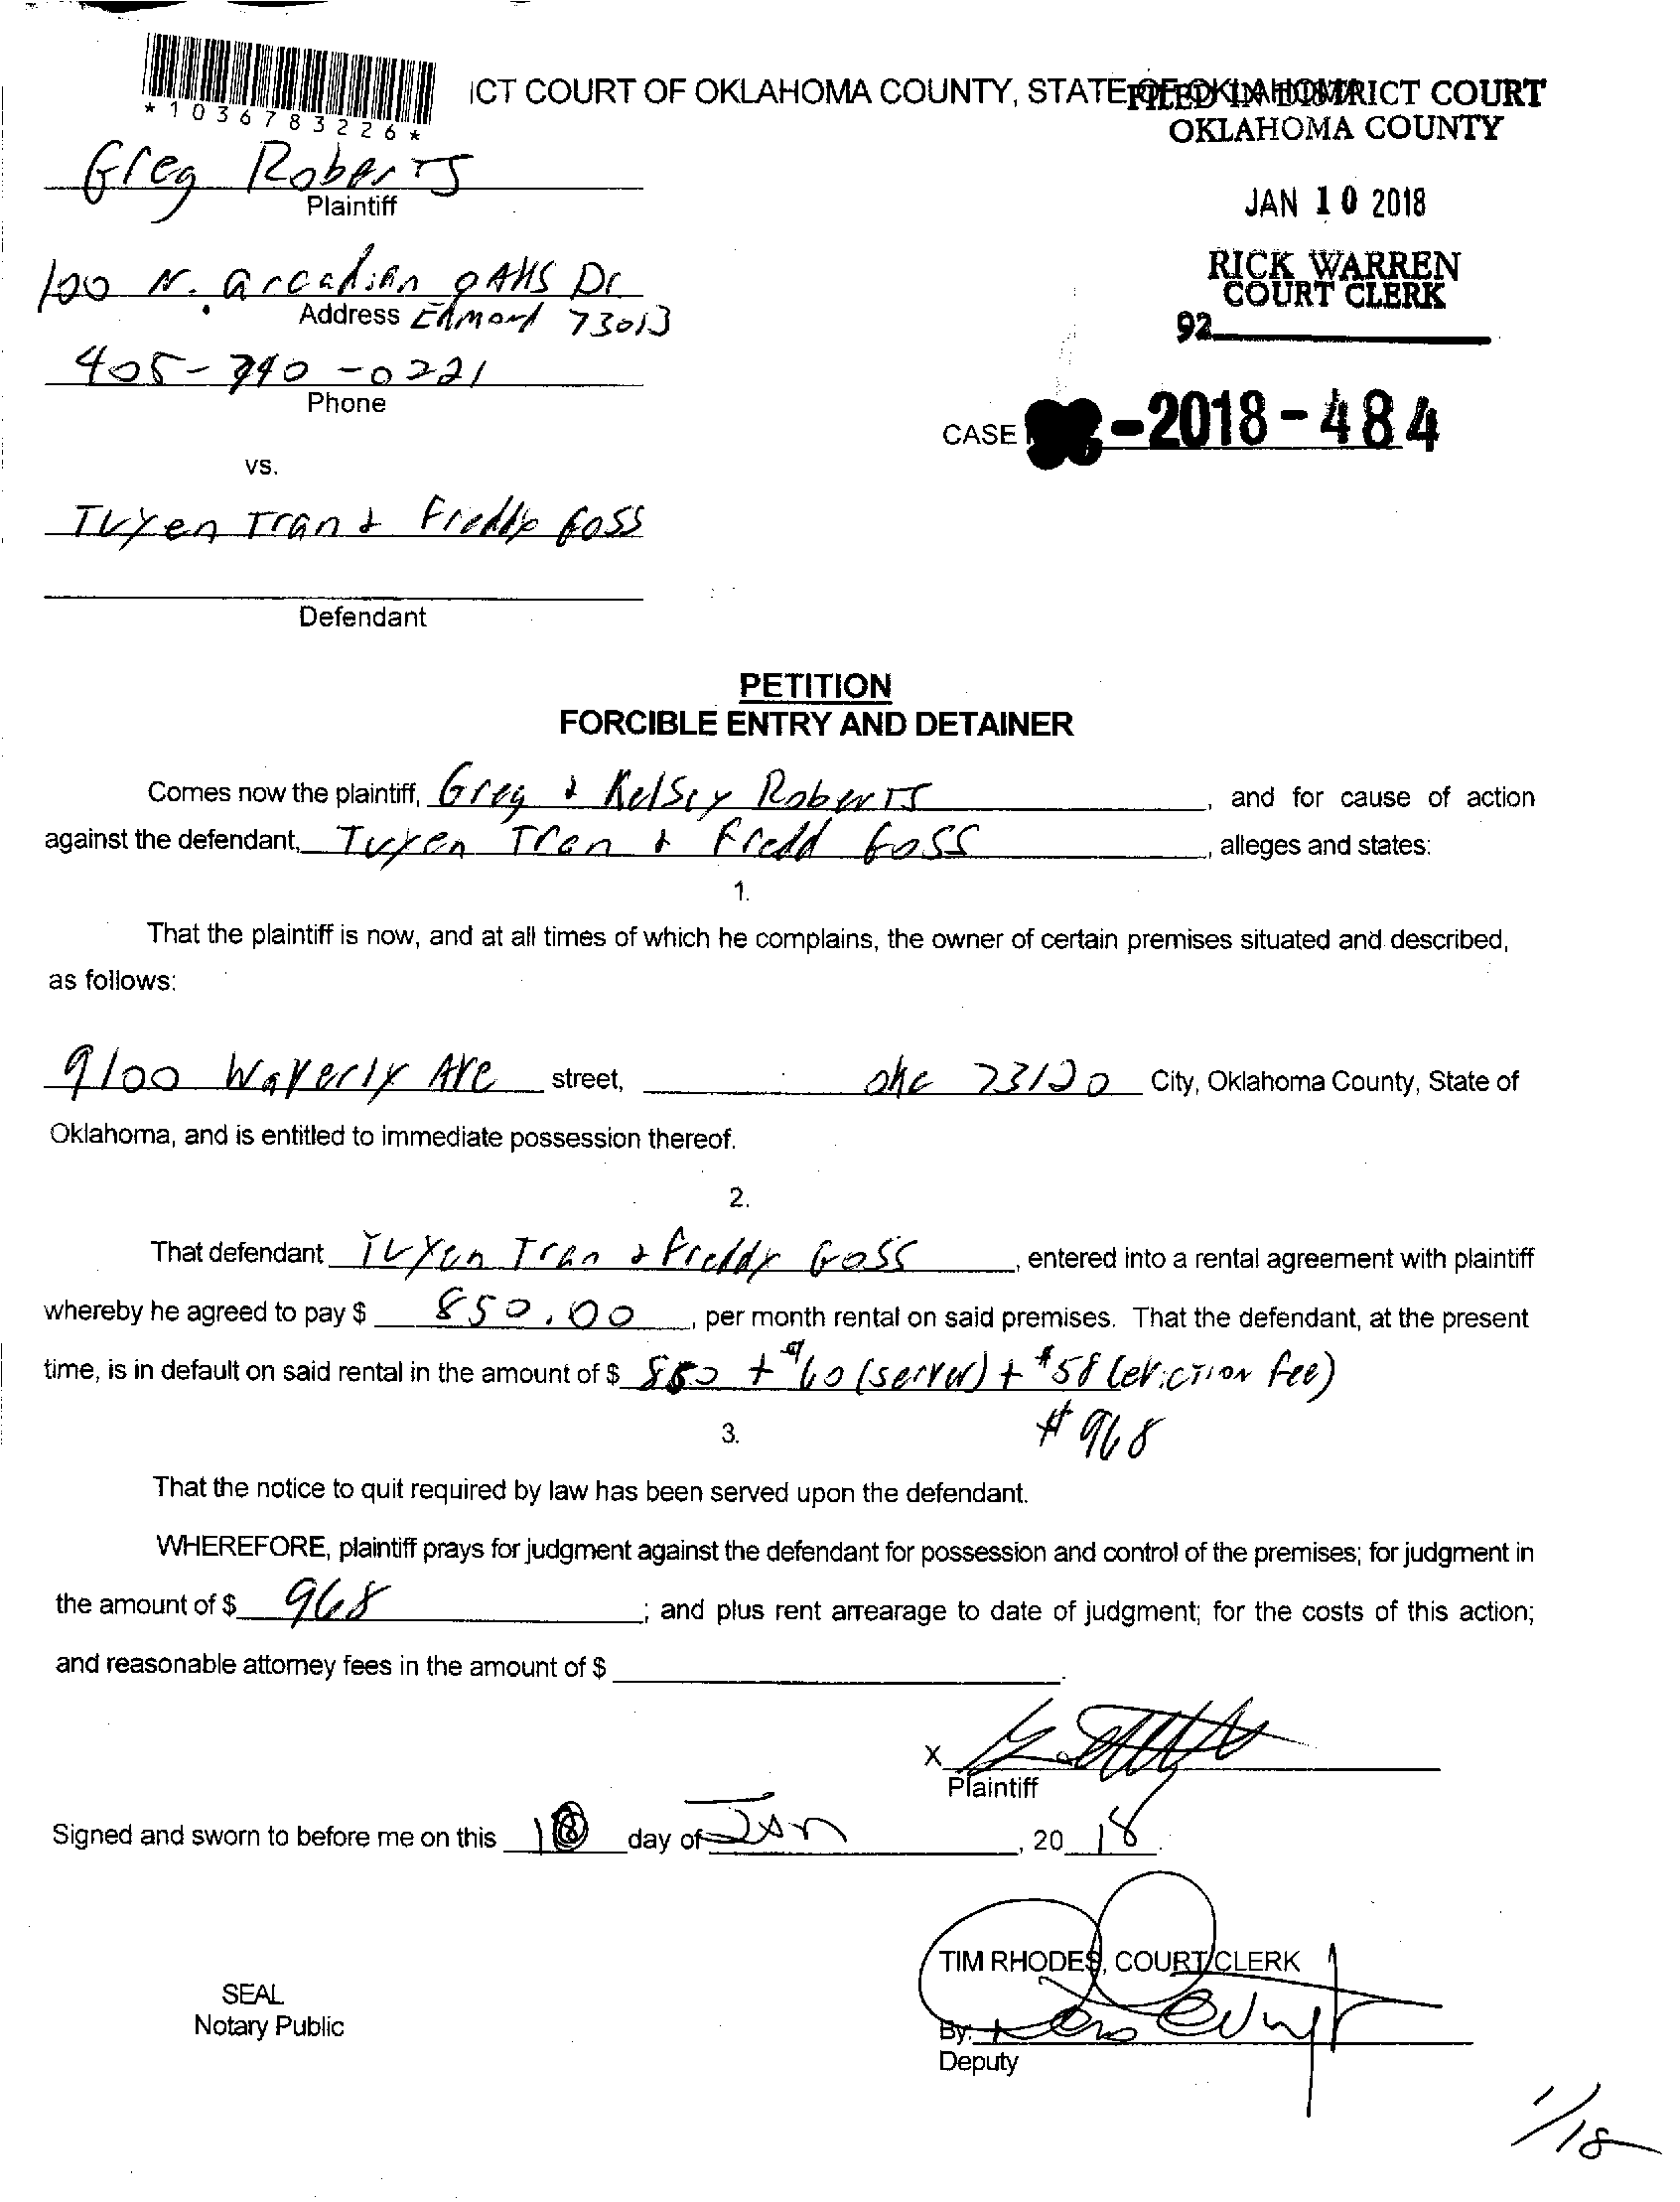 ICT COURT OF OKLAHOMA COUNTY, STATE
FILED IN DISTRICT COURT
OKLAHOMA COUNTY
*1036783226*
JAN 10 2018
RICK WARREN
COURT CLERK
92
Greg Roberts
Plaintiff
100 N. Arcadian OAKS Dr
Address Edmond 73013
405- -0221
Phone
CASE -2018-484
vs.
Tuyen Tran & Freddy Goss
Defendant
PETITION
FORCIBLE ENTRY AND DETAINER
Comes now the plaintiff, Greg & Kelsey Roberts, and for cause of action
against the defendant, Tuyen Tran & Fredd Goss, alleges and states:
1.
That the plaintiff is now, and at all times of which he complains, the owner of certain premises situated and described,
as follows:
9100 Waverly Ave street, okc 73120 City, Oklahoma County, State of
Oklahoma, and is entitled to immediate possession thereof.
2.
That defendant Tuyen Tran & Freddy Goss, entered into a rental agreement with plaintiff
whereby he agreed to pay $ 850.00, per month rental on said premises. That the defendant, at the present
time, is in default on said rental in the amount of $ 850 + $60 (server) + $58 (eviction fee)
$968
3.
That the notice to quit required by law has been served upon the defendant.
WHEREFORE, plaintiff prays for judgment against the defendant for possession and control of the premises; for judgment in
the amount of $ 968; and plus rent arrearage to date of judgment; for the costs of this action;
and reasonable attorney fees in the amount of $
X
Plaintiff
Signed and sworn to before me on this 10 day of Jan, 20 18.
TIM RHODES, COURT CLERK
SEAL
Notary Public
By:
Deputy
1/18